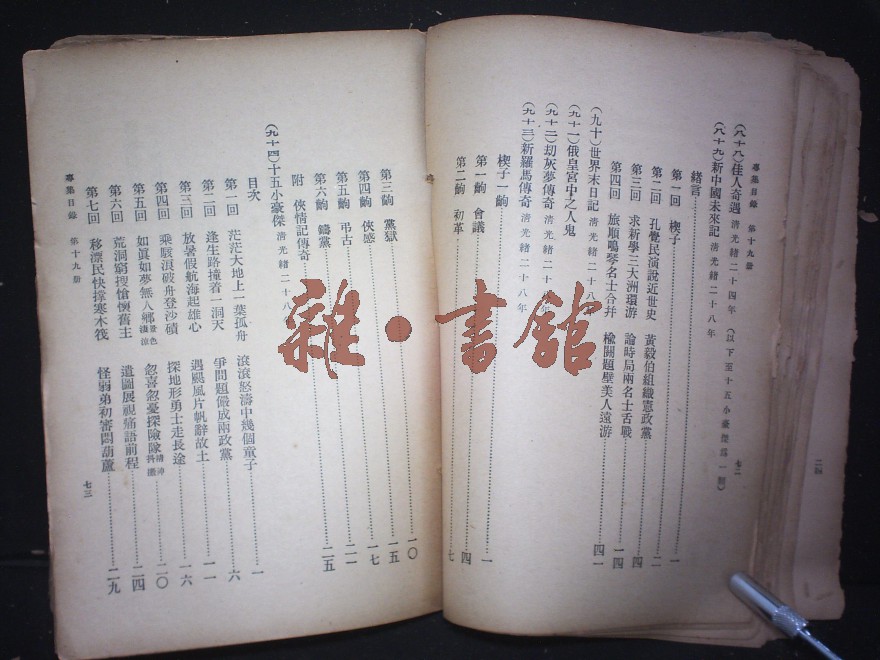 專集目錄　第十九册　七二
(八十八)佳人奇遇 清光緒二十四年
(八十九)新中國未來記 清光緒二十八年 (以下至十五小豪傑爲一冊)
緒言……一
第一回　楔子……一
第二回　孔覺民演說近世史　黃毅伯組織憲政黨……二
第三回　求新學三大洲環游　論時局兩名士舌戰……四
第四回　旅順鳴琴名士合幷　楡關題壁美人遠游……一四
(九十)世界末日記 清光緒二十八……四一
(九十一)俄皇宮中之人鬼
(九十二)劫灰夢傳奇 清光緒二十八
(九十三)新羅馬傳奇 清光緒二十八年
楔子一齣……一
第一齣　會議……四
第二齣　初革……七
第三齣　黨獄……一〇
第四齣　俠感……一五
第五齣　弔古……一七
第六齣　鑄黨……二一
附　俠情記傳奇……二五
(九十四)十五小豪傑 清光緒二十八
目次
第一回　茫茫大地上一葉孤舟　滾滾怒濤中幾個童子……一
第二回　逢生路撞着一洞天　爭問題儼成兩政黨……六
第三回　放暑假航海起雄心　遇颶風片帆辭故土……一一
第四回　乘駭浪破舟登沙磧　探地形勇士走長途……一六
第五回　如眞如夢無人鄉景色凄涼　忽喜忽憂探險隊精神抖擻……二〇
第六回　荒洞窮搜愴懷舊主　遺圖展視痛語前程……二四
第七回　移漂民快撐寒木筏　怪弱弟初審悶葫蘆……二九
專集目錄　第十九册　七三
雜·書館